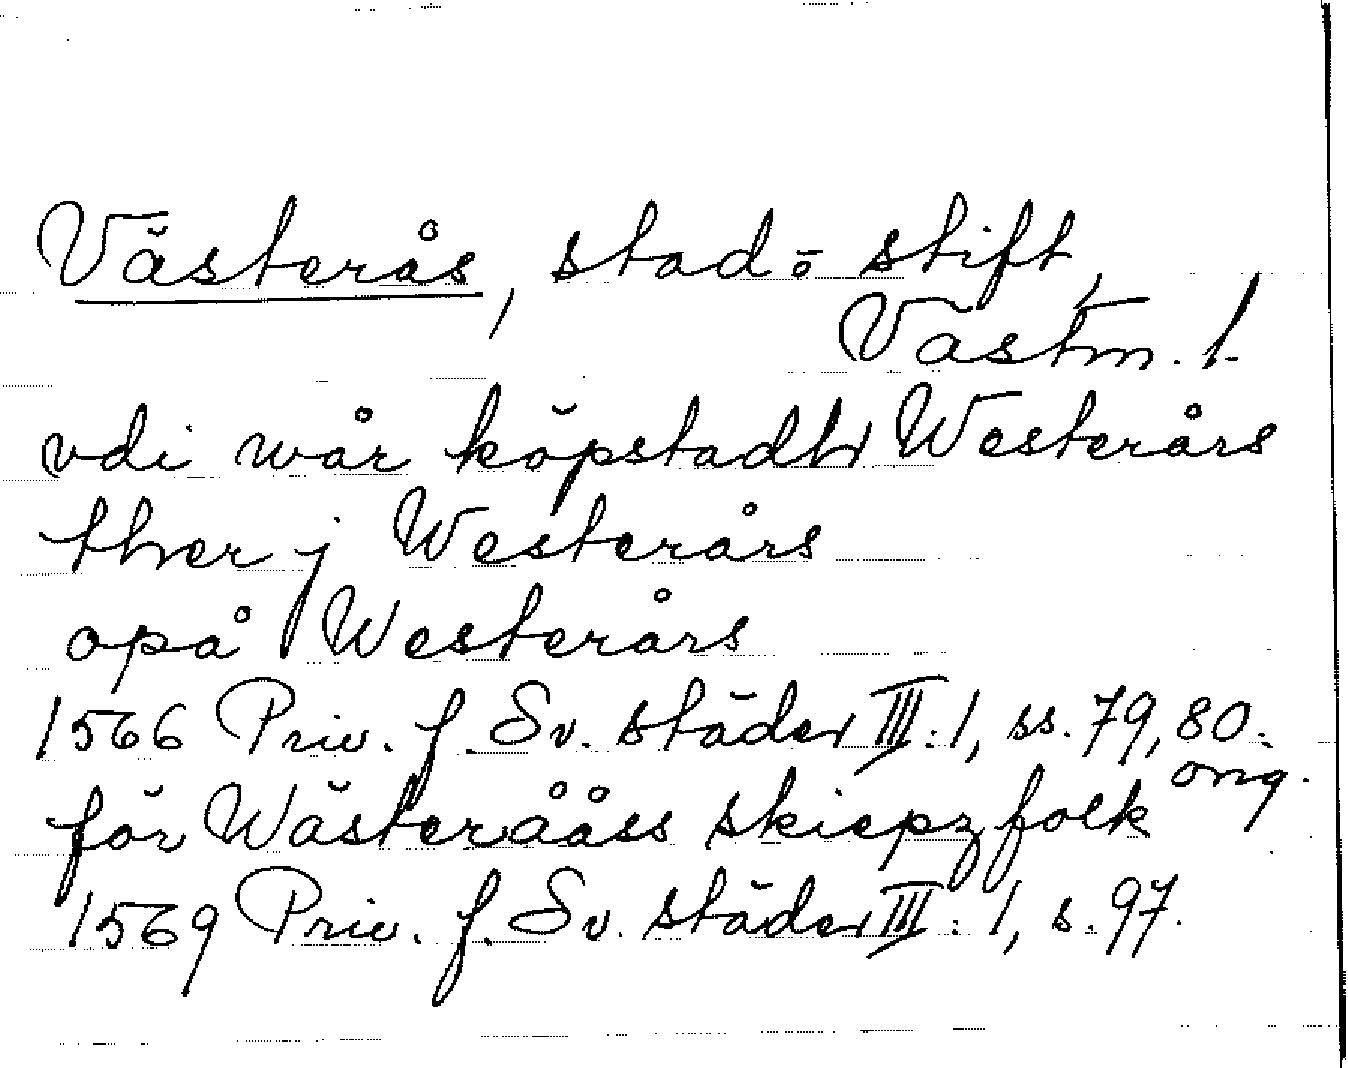 Västerås, stad o. stift,
Västm. l.
vdi wår köpstadh Westerårs
ther j Westerårs
opå Westerårs
1566 Priv. f. Sv. städer III:1, ss. 79, 80.
omg.
för Wästerååss skiepzfolk
1569 Priv. f. Sv. städer III:1, s. 97.